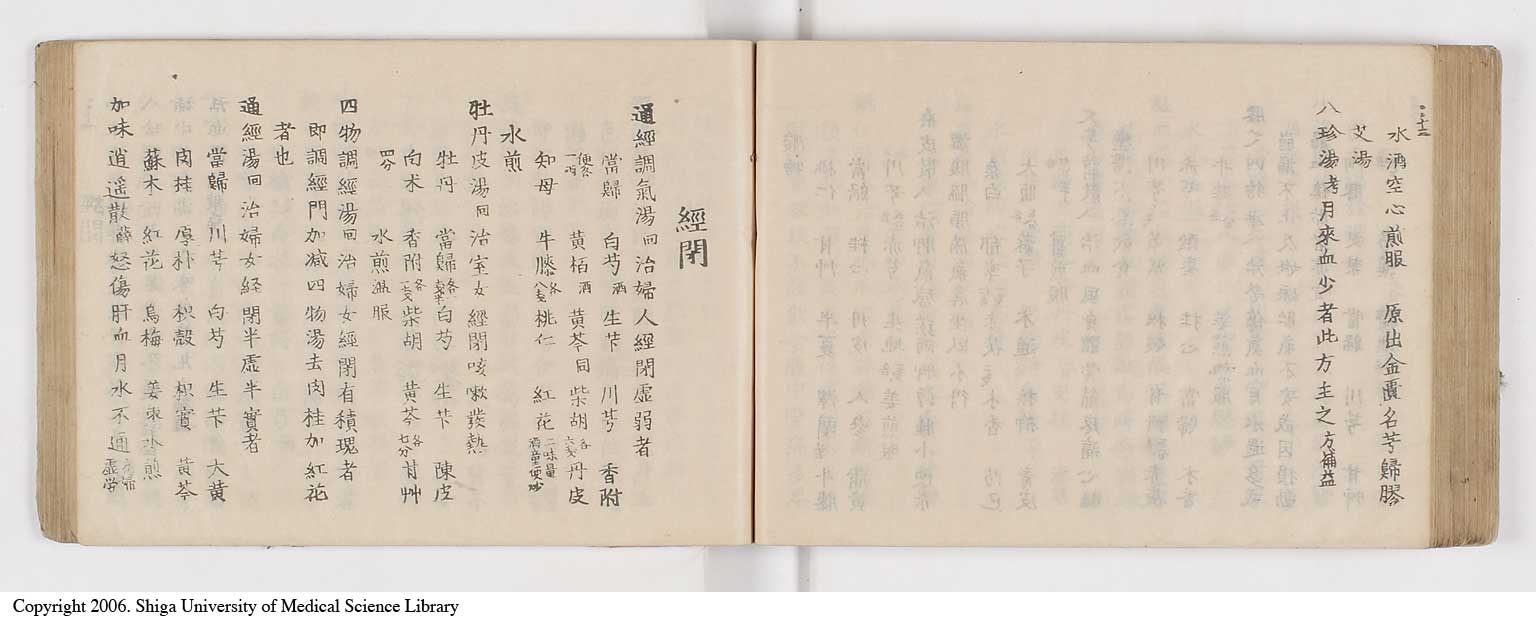 水酒空心煎服 原出金匱名芎歸膠
艾湯
八珍湯考月來血少者此方主之方補益
經閉
通經調氣湯回治婦人經閉虛弱者
當歸 白芍酒 生芐 川芎 香附
便一 黃栢酒 黃芩同 柴胡各 丹皮
知母 牛膝各八 桃仁 紅花二味量酒童便炒
水煎
牡丹皮湯回治室女經閉咳嗽發熱
牡丹 當歸各 白芍 生芐 陳皮
白朮 香附各一 柴胡 黃芩各七分 甘艸
四分 水煎溫服
四物調經湯回治婦女經閉有積塊者
即調經門加减四物湯去肉桂加紅花
者也
通經湯回治婦女経閉半虛半實者
當歸 川芎 白芍 生芐 大黃
肉桂 厚朴 枳殼 枳實 黃芩
蘇木 紅花 烏梅 姜棗水煎
加味逍遥散薛怒傷肝血月水不通虛勞
Copyright 2006. Shiga University of Medical Science Library